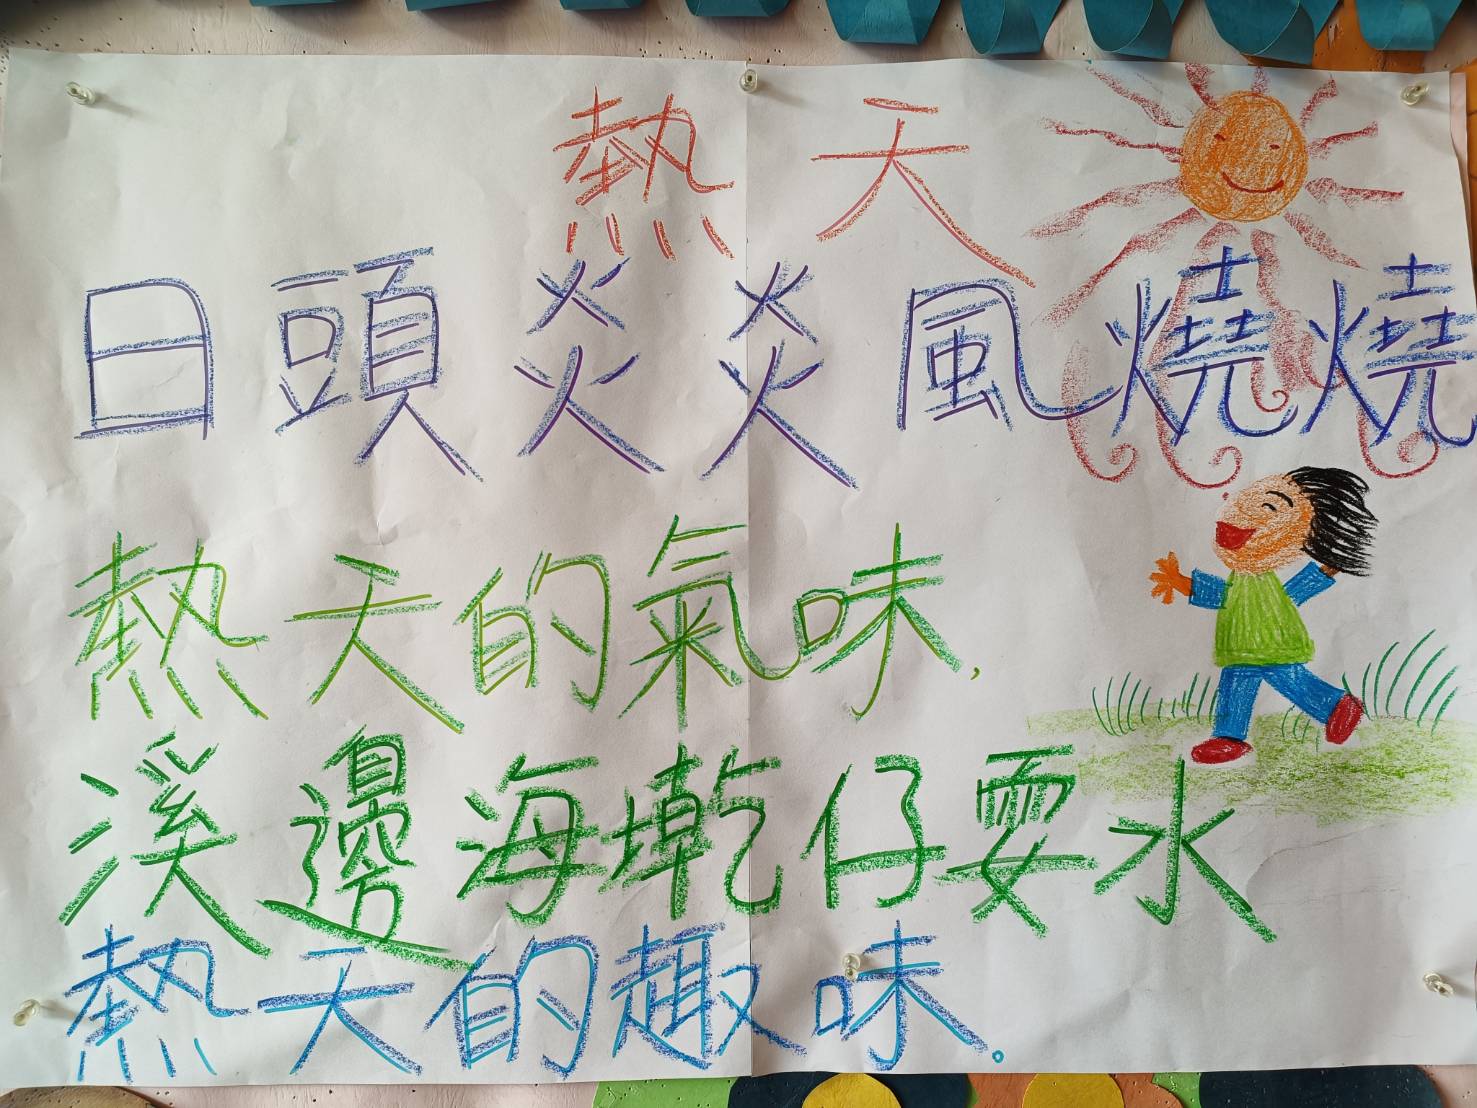 熱天
日頭炎炎風燒燒
熱天的氣味,
溪邊海墘仔耍水
熱天的趣味。